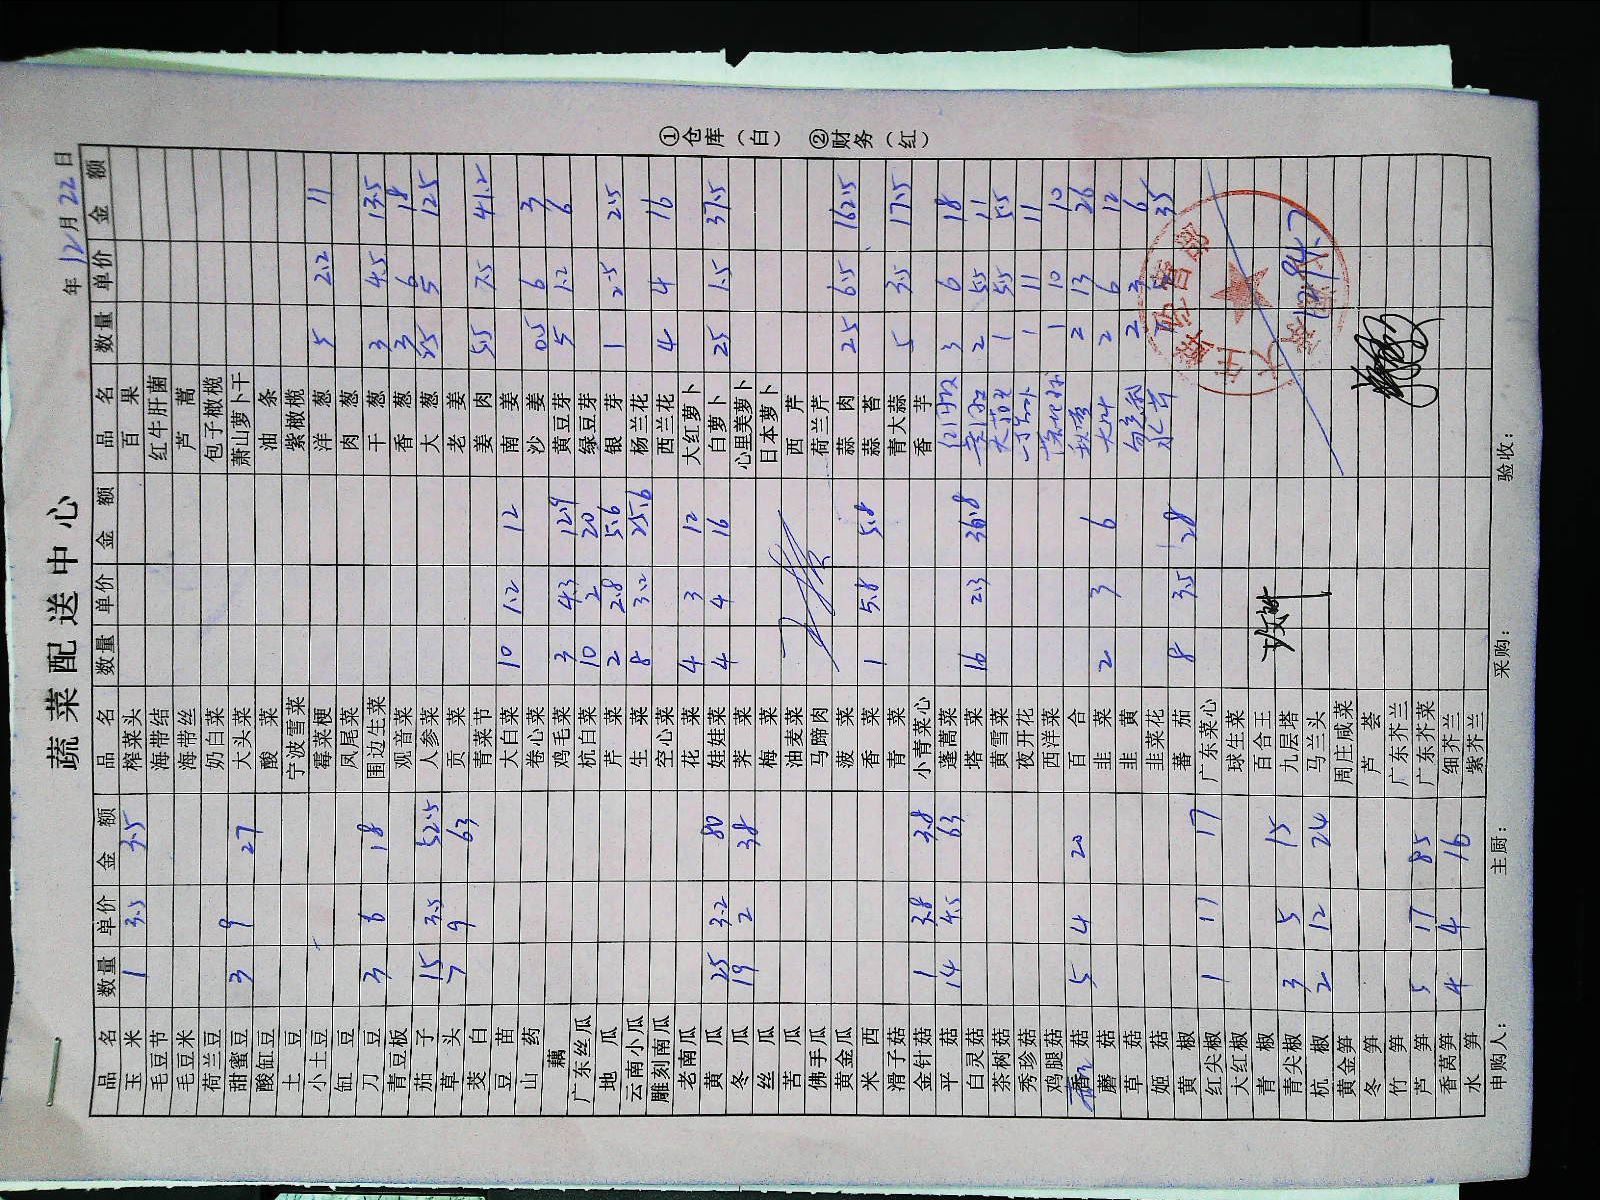 蔬菜配送中心
年 12月 22日
品名 数量 单价 金额 品名 数量 单价 金额 品名 数量 单价 金额
玉米 1 3.5 3.5 榨菜头 百果
毛豆节 海带结 红牛肝菌
毛豆米 海带丝 芦蒿
荷兰豆 奶白菜 包子橄榄
甜蜜豆 3 9 27 大头菜 萧山萝卜干
酸缸豆 酸菜 油条
土豆 宁波雪菜 紫橄榄
小土豆 霉菜梗 洋葱 5 2.2 11
缸豆 凤尾菜 肉葱
刀豆 3 6 18 围边生菜 干葱 3 4.5 13.5
青豆板 观音菜 香葱 3 6 18
茄子 15 3.5 52.5 人参菜 大葱 2.5 5 12.5
草头 7 9 63 贡菜 老姜
茭白 青菜节 姜肉 5.5 7.5 41.2
豆苗 大白菜 10 1.2 12 南姜
山药 卷心菜 沙姜 0.5 6 3
藕 鸡毛菜 3 4.3 12.9 黄豆芽 5 1.2 6
广东丝瓜 杭白菜 10 2 20 绿豆芽
地瓜 芹菜 2 2.8 5.6 银芽 1 2.5 2.5
云南小瓜 生菜 8 3.2 25.6 杨兰花
雕刻南瓜 空心菜 西兰花 4 4 16
老南瓜 花菜 4 3 12 大红萝卜
黄瓜 25 3.2 80 娃娃菜 4 4 16 白萝卜 25 1.5 37.5
冬瓜 19 2 38 荠菜 心里美萝卜
丝瓜 梅菜 日本萝卜
苦瓜 油麦菜 西芹
佛手瓜 马蹄肉 荷兰芹
黄金瓜 菠菜 蒜肉 25 6.5 162.5
米西 香菜 1 5.8 5.8 蒜苔
滑子菇 青菜 青大蒜 5 3.5 17.5
金针菇 1 3.8 3.8 小青菜心 香芋
平菇 14 4.5 63 蓬蒿菜 3 6 18
白灵菇 塔菜 16 2.3 36.8 2 5.5 11
茶树菇 黄雪菜 1 5.5 5.5
秀珍菇 夜开花 1 11 11
鸡腿菇 西洋菜 1 10 10
香菇 5 4 20 百合 2 13 26
蘑菇 韭菜 2 3 6 2 6 12
草菇 韭黄 2 3 6
姬菇 韭菜花 35
黄椒 蕃茄 8 3.5 28
红尖椒 1 17 17 广东菜心
大红椒 球生菜
青椒 百合王
青尖椒 3 5 15 九层塔
杭椒 2 12 24 马兰头
黄金笋 周庄咸菜
冬笋 芦荟
竹笋 广东芥兰
芦笋 5 17 85 广东芥菜
香莴笋 4 4 16 细芥兰
水笋 紫芥兰
申购人： 主厨： 采购： 验收：
①仓库（白） ②财务（红）